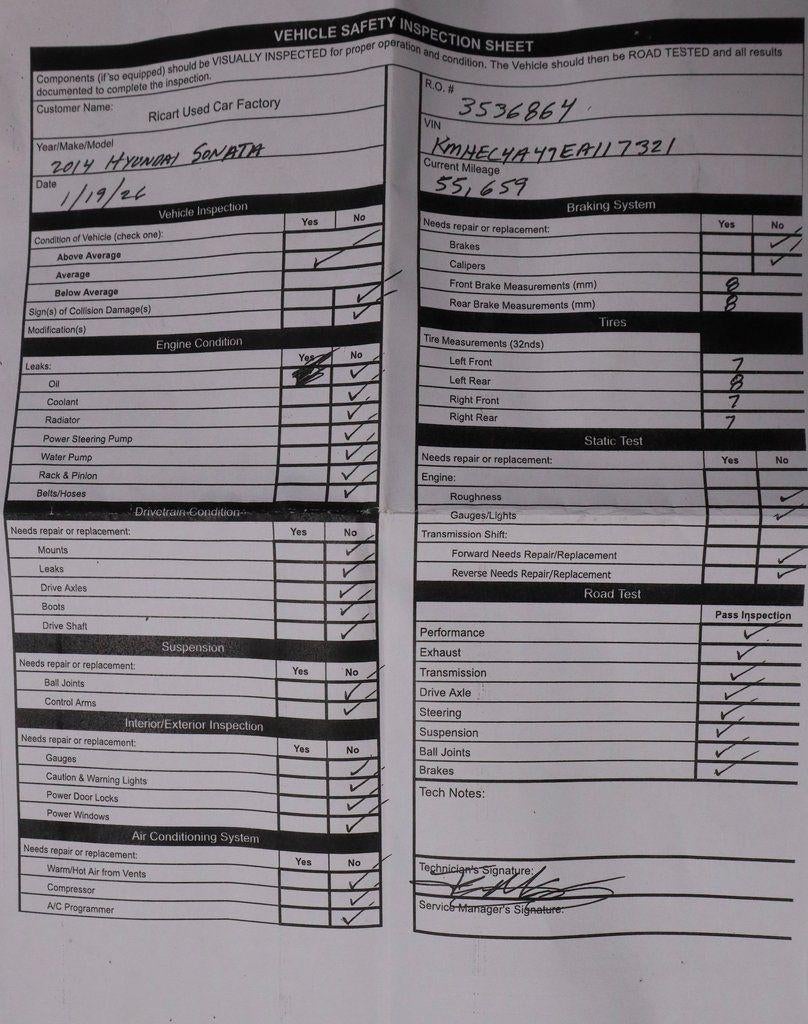 VEHICLE SAFETY INSPECTION SHEET
Components (if so equipped) should be VISUALLY INSPECTED for proper operation and condition. The Vehicle should then be ROAD TESTED and all results
documented to complete the inspection.
Customer Name: Ricart Used Car Factory
Year/Make/Model
2014 HYUNDAI SONATA
Date
1/19/26
Vehicle Inspection
Yes No
Condition of Vehicle (check one):
Above Average
Average
Below Average
Sign(s) of Collision Damage(s)
Modification(s)
Engine Condition
Leaks: Yes No
Oil
Coolant
Radiator
Power Steering Pump
Water Pump
Rack & Pinion
Belts/Hoses
Drivetrain Condition
Needs repair or replacement: Yes No
Mounts
Leaks
Drive Axles
Boots
Drive Shaft
Suspension
Needs repair or replacement: Yes No
Ball Joints
Control Arms
Interior/Exterior Inspection
Needs repair or replacement: Yes No
Gauges
Caution & Warning Lights
Power Door Locks
Power Windows
Air Conditioning System
Needs repair or replacement: Yes No
Warm/Hot Air from Vents
Compressor
A/C Programmer
R.O. #
3536864
VIN
KMHEC4A47EA117321
Current Mileage
55,659
Braking System
Needs repair or replacement: Yes No
Brakes
Calipers
Front Brake Measurements (mm) 8
Rear Brake Measurements (mm) 8
Tires
Tire Measurements (32nds)
Left Front 7
Left Rear 8
Right Front 7
Right Rear 7
Static Test
Needs repair or replacement: Yes No
Engine:
Roughness
Gauges/Lights
Transmission Shift:
Forward Needs Repair/Replacement
Reverse Needs Repair/Replacement
Road Test
Pass Inspection
Performance
Exhaust
Transmission
Drive Axle
Steering
Suspension
Ball Joints
Brakes
Tech Notes:
Technician's Signature:
Service Manager's Signature: